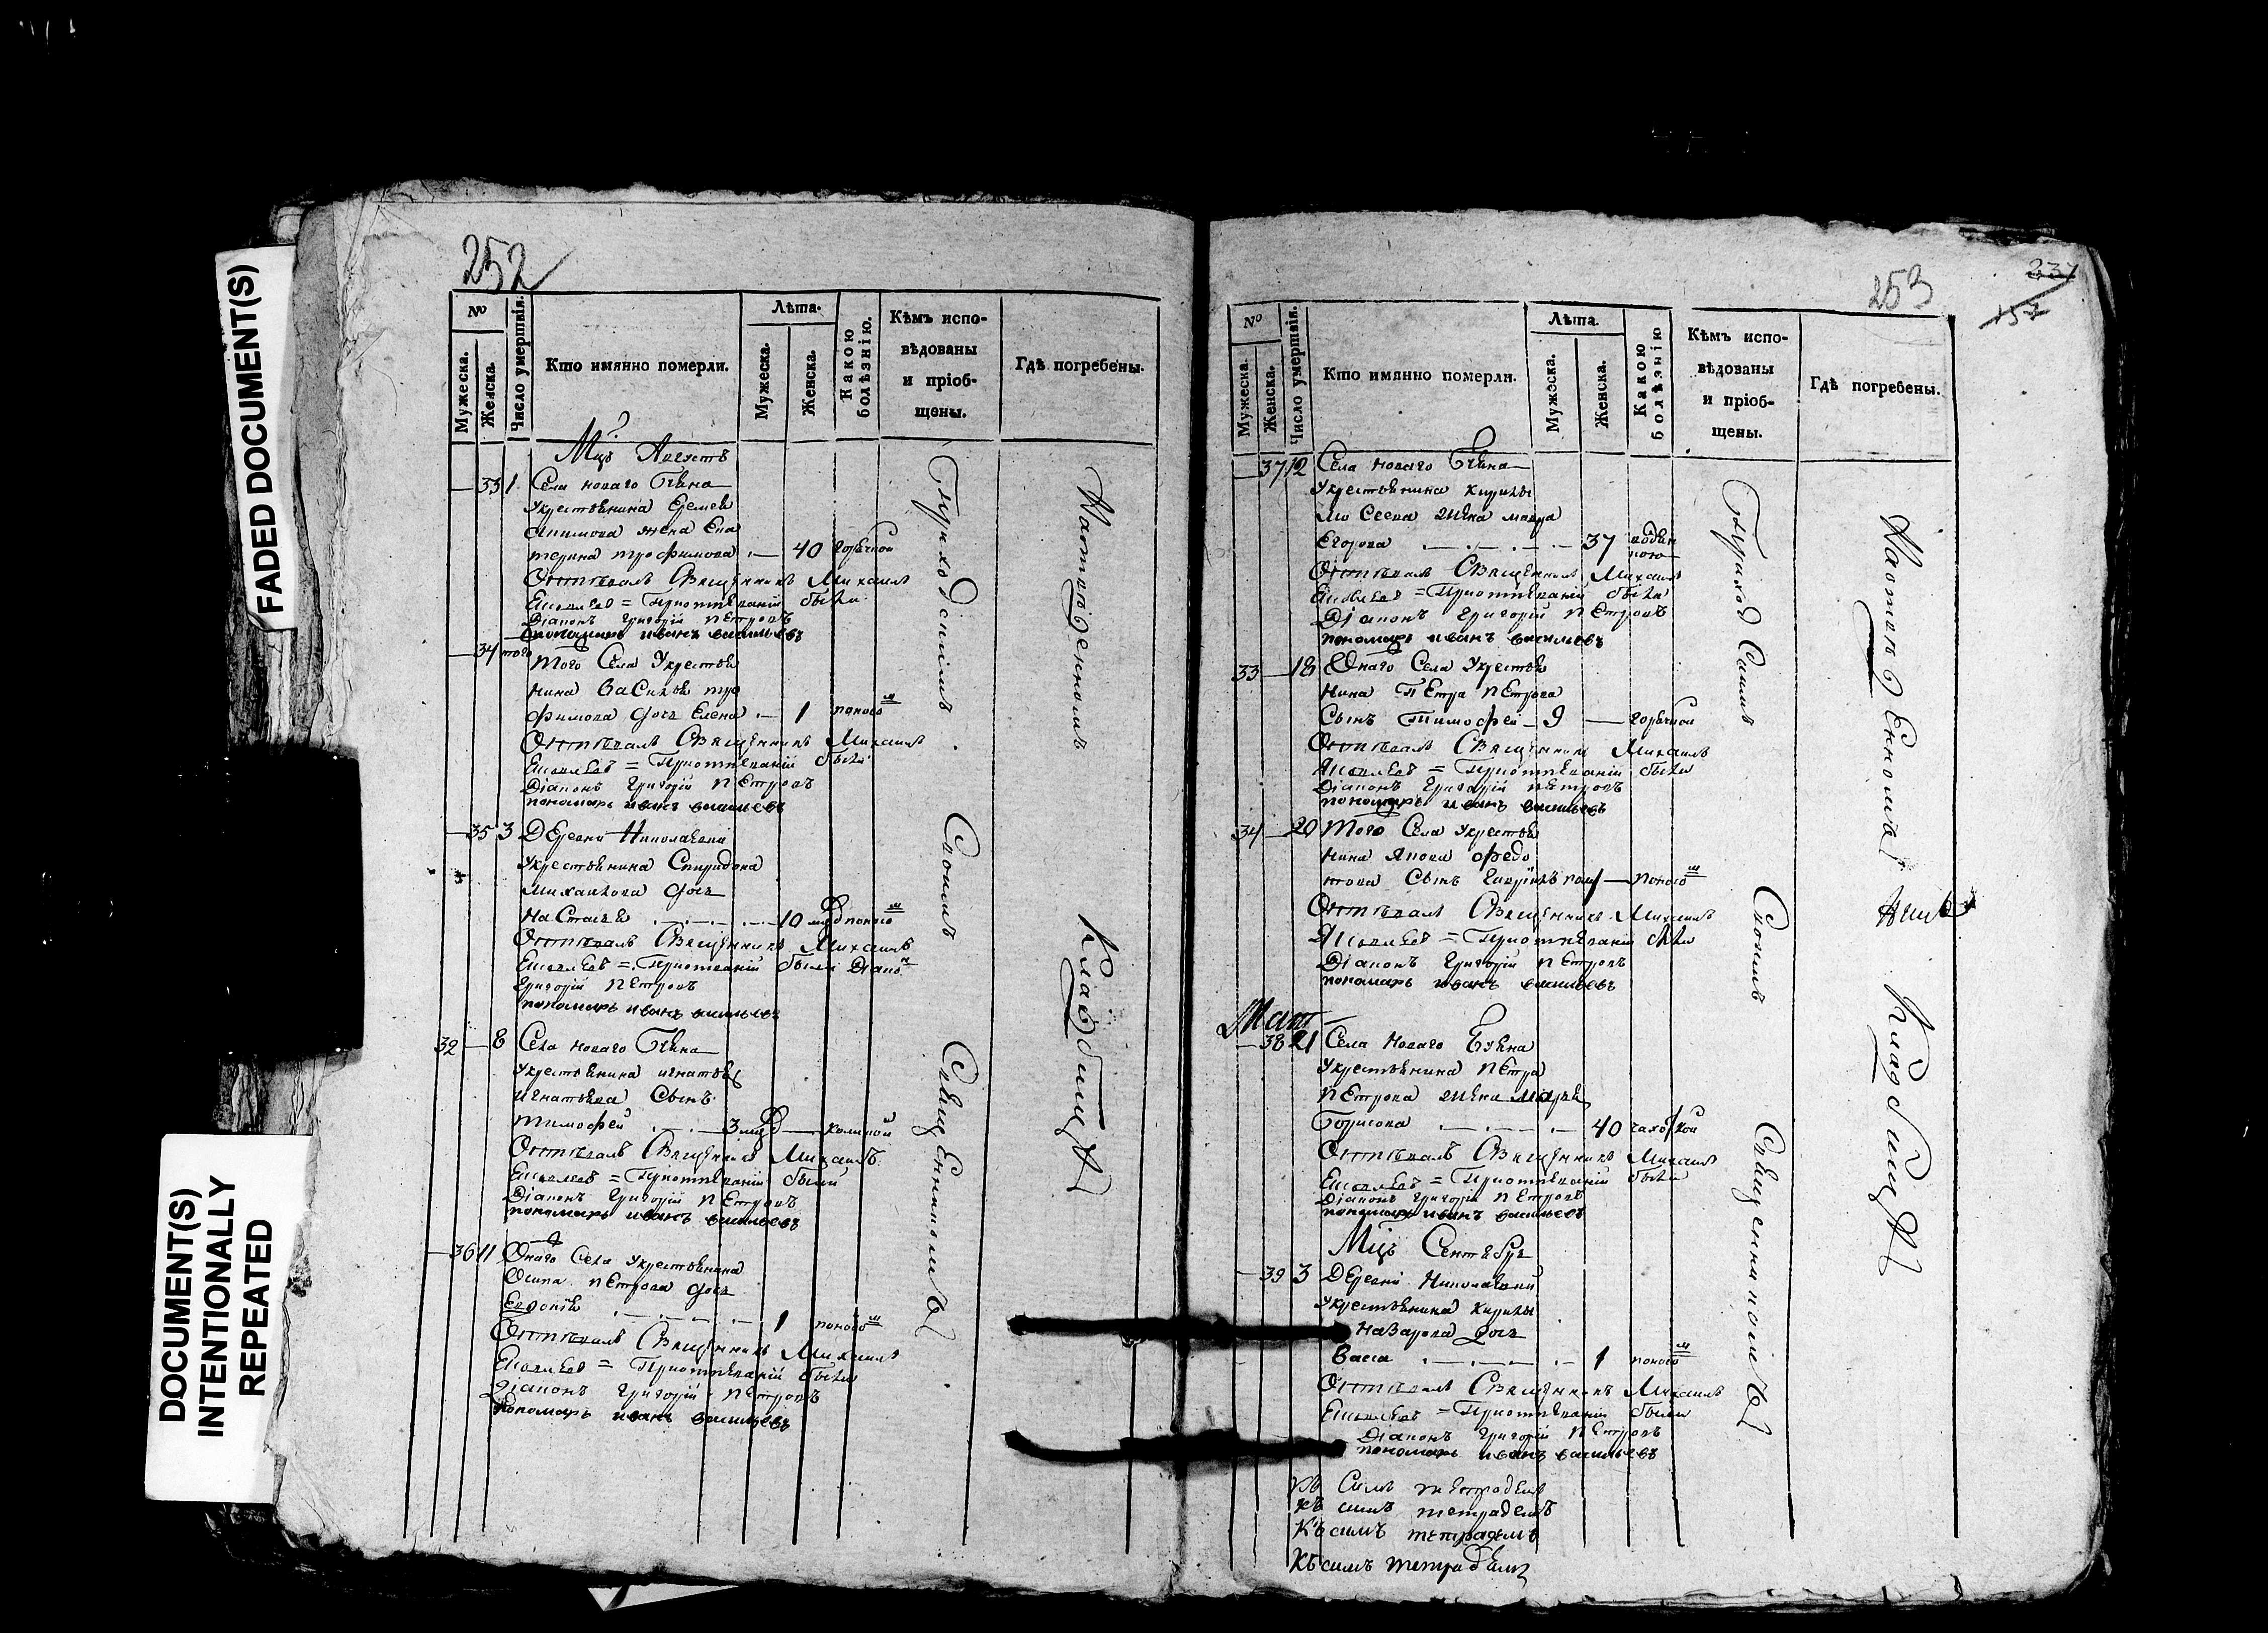 FADED DOCUMENT(S)
DOCUMENT(S)
INTENTIONALLY
REPEATED
252
№
Мужеска.
Женска.
Число умершвія.
Кто имянно померли.
Лѣта.
Мужеска.
Женска.
Какою
болѣзнію.
Кѣмъ испо-
вѣдованы
и пріоб-
щены.
Гдѣ погребены.
Мцъ Августъ
33 1 Села Новаго
Крестьянина Еремея
жена Ека
терина Трофимова 40 горячкой
Отпѣвалъ Священникъ Михаилъ
Яковлевъ = При отпѣваніи были
Діаконъ Григорій Петровъ
пономарь Иванъ Васильевъ
34 того Того Села Крестья
нина Василья Тро
фимова дочь Елена 1 поносом
Отпѣвалъ Священникъ Михаилъ
Яковлевъ = При отпѣваніи были
Діаконъ Григорій Петровъ
пономарь Иванъ Васильевъ
35 3 Деревни Николаевки
Крестьянина Спиридона
Михайлова дочь
Настасья 10 поносом
Отпѣвалъ Священникъ Михаилъ
Яковлевъ = При отпѣваніи были Діакон
Григорій Петровъ
пономарь Иванъ Васильевъ
32 8 Села Новаго
Крестьянина Игнатья
Игнатьева Сынъ
Тимофей 3
Отпѣвалъ Священникъ Михаилъ
Яковлевъ = При отпѣваніи были
Діаконъ Григорій Петровъ
пономарь Иванъ Васильевъ
36 11 Онаго Села Крестьянина
Осипа Петрова дочь
1 поносом
Отпѣвалъ Священникъ Михаилъ
Яковлевъ = При отпѣваніи были
Діаконъ Григорій Петровъ
пономарь Иванъ Васильевъ
Приходскимъ Своимъ Священникомъ
Кладбищѣ
253
237
№
Мужеска.
Женска.
Число умершвія.
Кто имянно померли.
Лѣта.
Мужеска.
Женска.
Какою
болѣзнію
Кѣмъ испо-
вѣдованы
и пріоб-
щены.
Гдѣ погребены.
37 12 Села Новаго
Крестьянина Кирилы
жена Мавра
Егорова 37
Отпѣвалъ Священникъ Михаилъ
Яковлевъ = При отпѣваніи были
Діаконъ Григорій Петровъ
пономарь Иванъ Васильевъ
33 18 Онаго Села Крестья
нина Петра Петрова
Сынъ Тимофей 9 горячкой
Отпѣвалъ Священникъ Михаилъ
Яковлевъ = При отпѣваніи были
Діаконъ Григорій Петровъ
пономарь Иванъ Васильевъ
34 20 Того Села Крестья
нина Якова Федо
това Сынъ поносом
Отпѣвалъ Священникъ Михаилъ
Яковлевъ = При отпѣваніи были
Діаконъ Григорій Петровъ
пономарь Иванъ Васильевъ
38 21 Села Новаго
Крестьянина Петра
Петрова жена Марья
Борисова 40
Отпѣвалъ Священникъ Михаилъ
Яковлевъ = При отпѣваніи были
Діаконъ Григорій Петровъ
пономарь Иванъ Васильевъ
Мцъ Сентябрь
39 3 Деревни Николаевки
Крестьянина Кирилы
Назарова дочь
Васса 1 поносом
Отпѣвалъ Священникъ Михаилъ
Яковлевъ = При отпѣваніи были
Діаконъ Григорій Петровъ
пономарь Иванъ Васильевъ
Къ симъ тетрадемъ
Къ симъ тетрадемъ
Къ симъ тетрадемъ
Къ симъ тетрадемъ
Приходскимъ Своимъ Священникомъ
Кладбищѣ